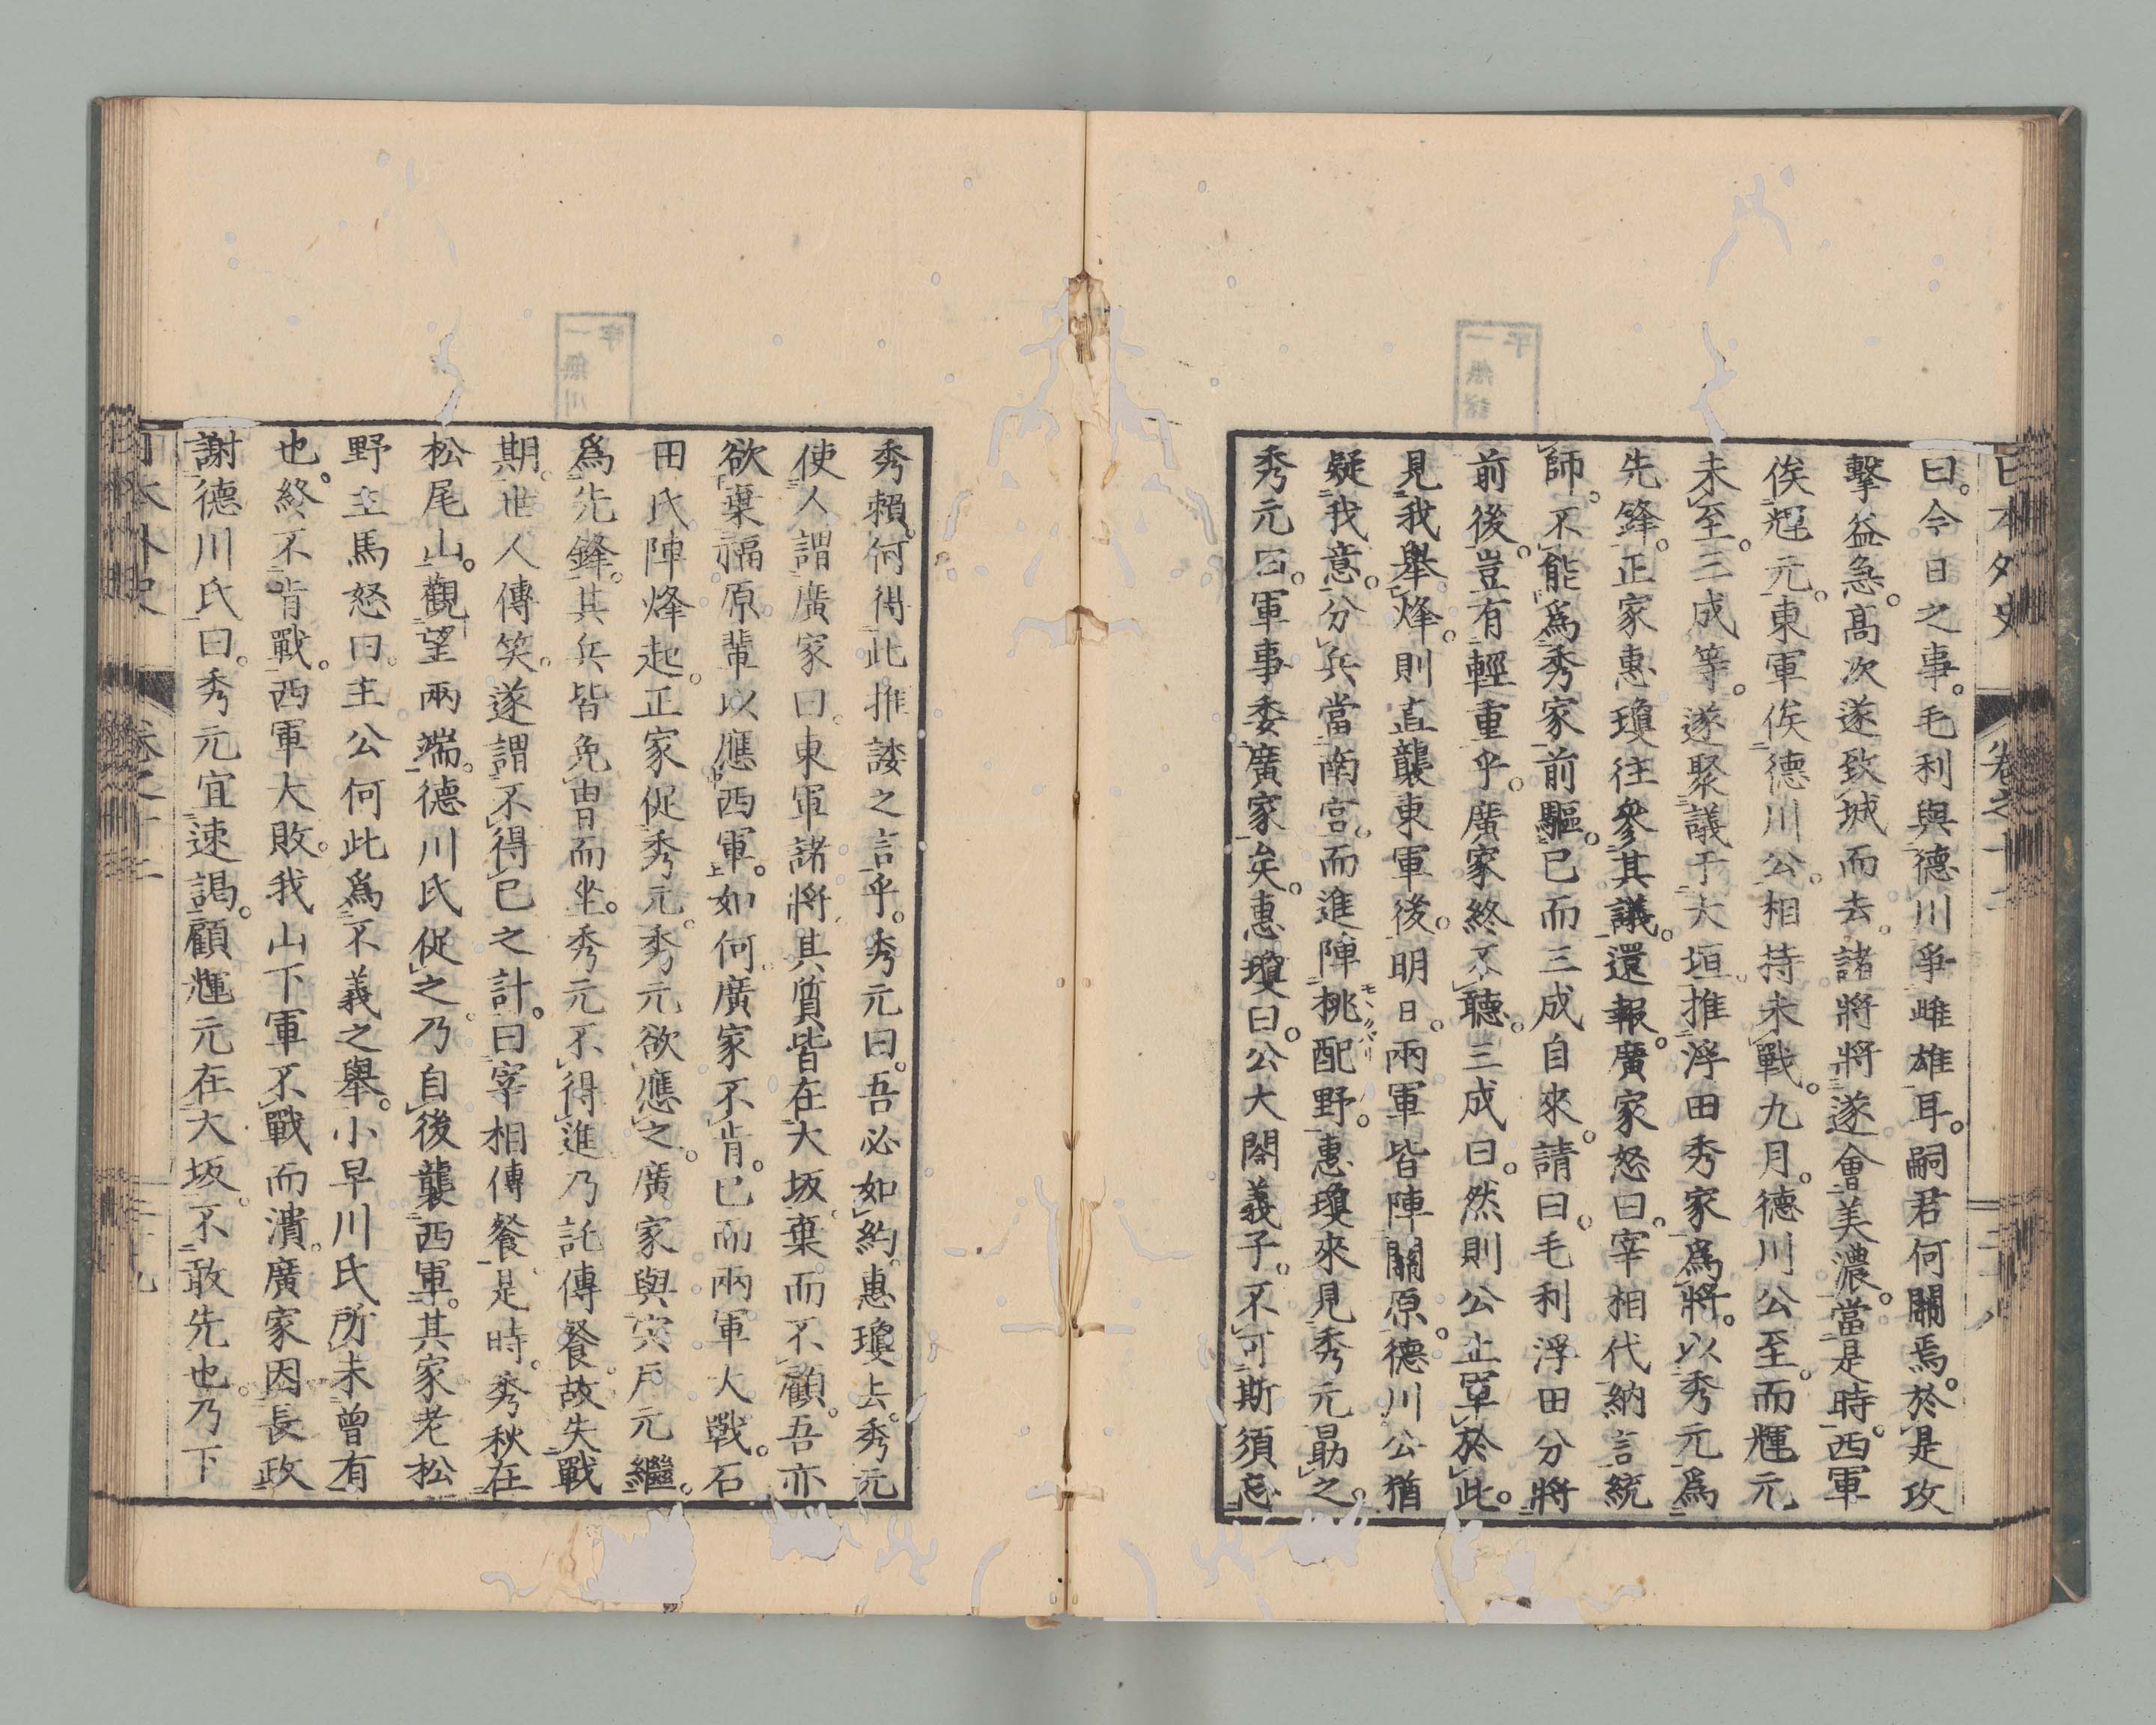 日本外史 卷之十二 二十八
曰。今日之事。毛利與德川爭雌雄耳。嗣君何關焉。於是攻
擊益急。高次遂致城而去。諸將將遂會美濃。當是時。西軍
俟輝元。東軍俟德川公。相持未戰。九月。德川公至。而輝元
未至。三成等。遂聚議于大垣。推浮田秀家爲將。以秀元爲
先鋒。正家惠瓊往參其議。還報廣家。廣家怒曰。宰相代納言統
師。不能爲秀家前驅。已而三成自來。請曰。毛利浮田分將
前後。豈有輕重乎。廣家終不聽。三成曰。然則公止軍於此。
見我舉烽。則直襲東軍後。明日。兩軍皆陣關原。德川公猶
疑我意。分兵當南宮。而進陣桃配野。惠瓊來見秀元勗之。
モヽクバリ
秀元曰。軍事委廣家矣。惠瓊曰。公大閤義子。不可斯須忘
秀賴。何得此推諉之言乎。秀元曰。吾必如約。惠瓊去。秀元
使人謂廣家曰。東軍諸將。其質皆在大坂。棄而不顧。吾亦
欲棄福原輩以應西軍。如何。廣家不肯。已而兩軍大戰。石
田氏陣烽起。正家促秀元。秀元欲應之。廣家與宍戶元繼。
爲先鋒。其兵皆免冑而坐。秀元不得進乃託傳餐。故失戰
期。世人傳笑。遂謂不得已之計。曰宰相傳餐。是時。秀秋在
松尾山。觀望兩端。德川氏促之。乃自後襲西軍。其家老松
野主馬怒曰。主公何此爲不義之舉。小早川氏所未曾有
也。終不肯戰。西軍大敗。我山下軍不戰而潰。廣家因長政
謝德川氏曰。秀元宜速謁。顧輝元在大坂。不敢先也。乃下
日本外史 卷之十二 二十九